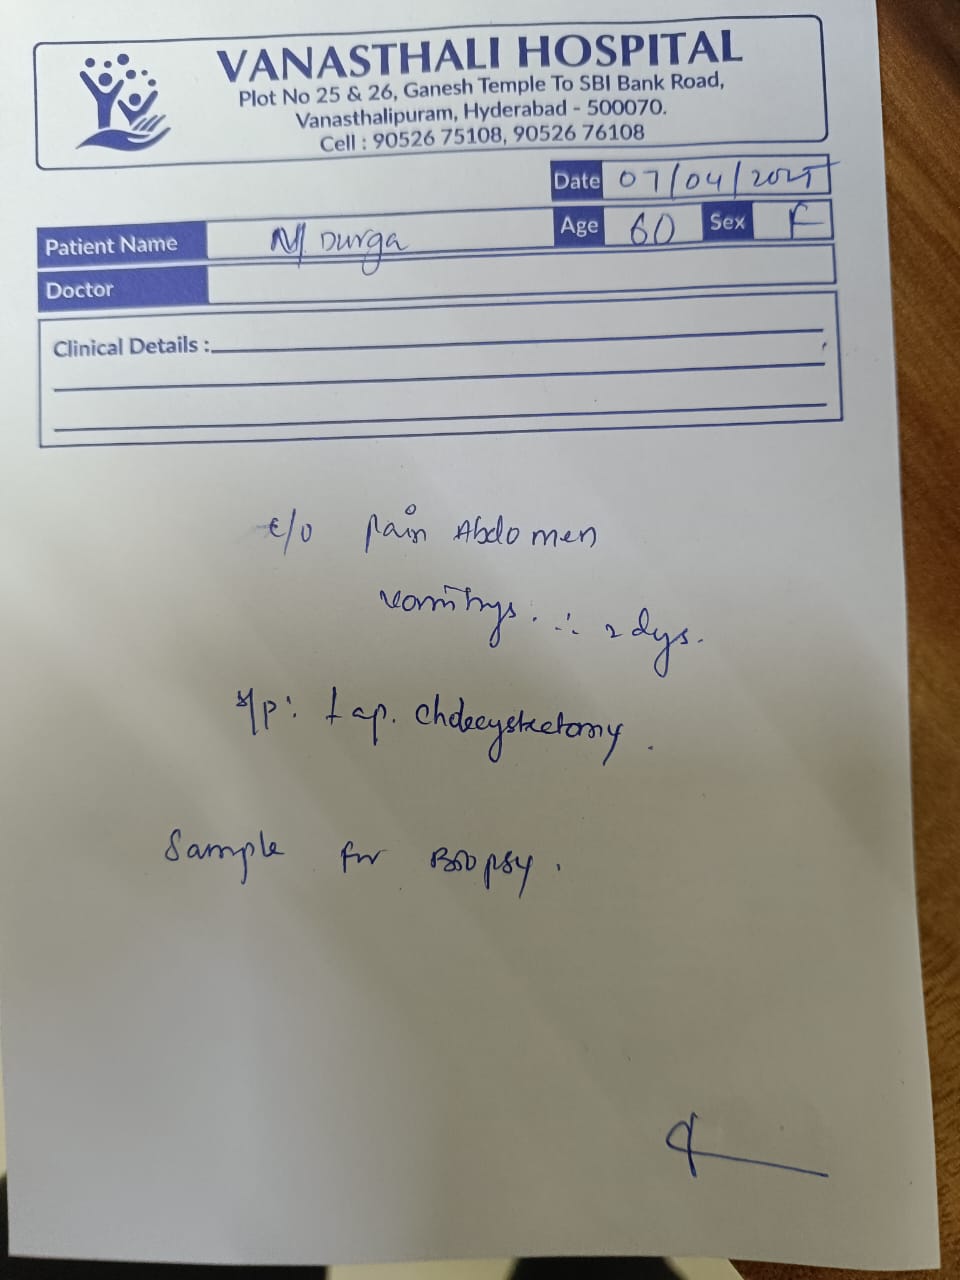 VANASTHALI HOSPITAL
Plot No 25 & 26, Ganesh Temple To SBI Bank Road,
Vanasthalipuram, Hyderabad - 500070.
Cell : 90526 75108, 90526 76108
Date 07/04/2025
Patient Name M. Durga Age 60 Sex F
Doctor
Clinical Details :
c/o pain Abdomen
vomitings. ∴ 2 dys.
s/p: Lap. cholecystectomy.
Sample for Biopsy.